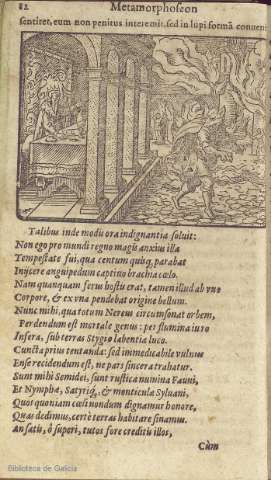 82 Metamorphoseon
sentiret, eum non penitus interemit, sed in lupi formā conuen
Talibus inde modis ora indignantia soluit:
Non ego pro mundi regno magis anxius illa
Tempestate fui, qua centum quisq, parabat
Inijcere anguipedum captiuo brachia cœlo.
Nam quanquam ferus hostis erat, tamen illud ab vno
Corpore, & ex vna pendebat origine bellum.
Nunc mihi, qua totum Nereus circumsonat orbem,
Perdendum est mortale genus: per flumina iuro
Infera, sub terras Stygio labentia luco.
Cuncta prius tentanda: sed immedicabile vulnus
Ense recidendum est, ne pars sincera trahatur.
Sunt mihi Semidei, sunt rustica numina Fauni,
Et Nymphæ, Satyriq, & monticulæ Syluani,
Quos quoniam cœli nondum dignamur honore,
Quas dedimus, certè terras habitare sinamus.
An satis, ô superi, tutos fore creditis illos,
Cùm
Biblioteca de Galicia